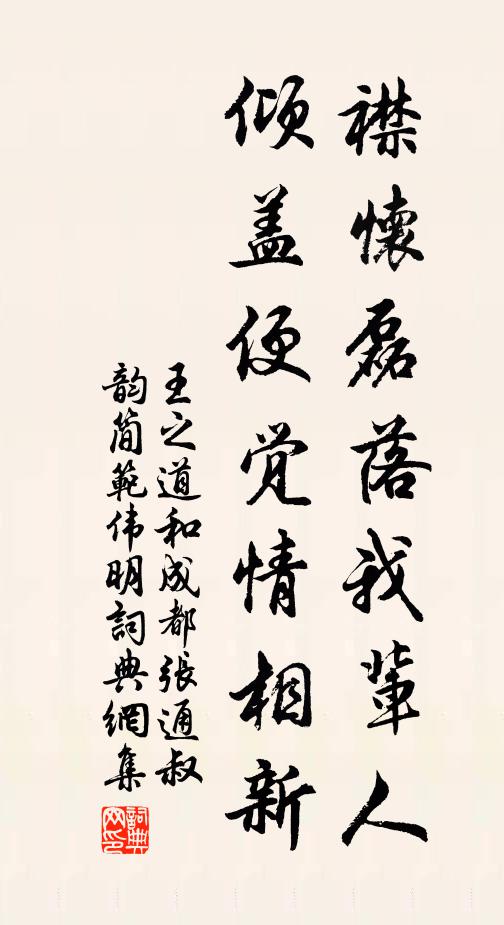 襟懷磊落我輩人
傾盖便觉情相新
王之道和成都張通叔
韵簡範伟明詞典網集
詞典網印